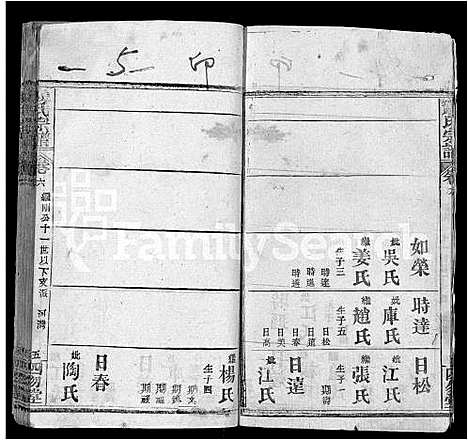 5 印
如榮
妣吳氏
繼姜氏
生子三
時達
時運
時進
時達
妣庫氏
繼趙氏
生子五
日松
日春
日遠
日美
日高
日松
妣江氏
繼張氏
生子一
期濤
日遠
妣江氏
繼楊氏
生子四
日春
妣陶氏
氏宗譜
卷六
公十一世以下支派
五
四勿堂
FamilySearch